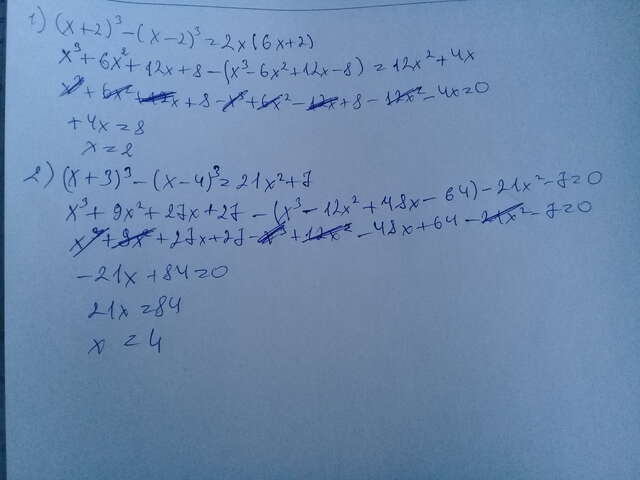 1) (x+2)³-(x-2)³=2x(6x+2)
x³+6x²+12x+8-(x³-6x²+12x-8)=12x²+4x
x³+6x²+12x+8-x³+6x²-12x+8-12x²-4x=0
+4x=8
x=2
2) (x+3)³-(x-4)³=21x²+7
x³+9x²+27x+27-(x³-12x²+48x-64)-21x²-7=0
x³+9x²+27x+27-x³+12x²-48x+64-21x²-7=0
-21x+84=0
21x=84
x=4